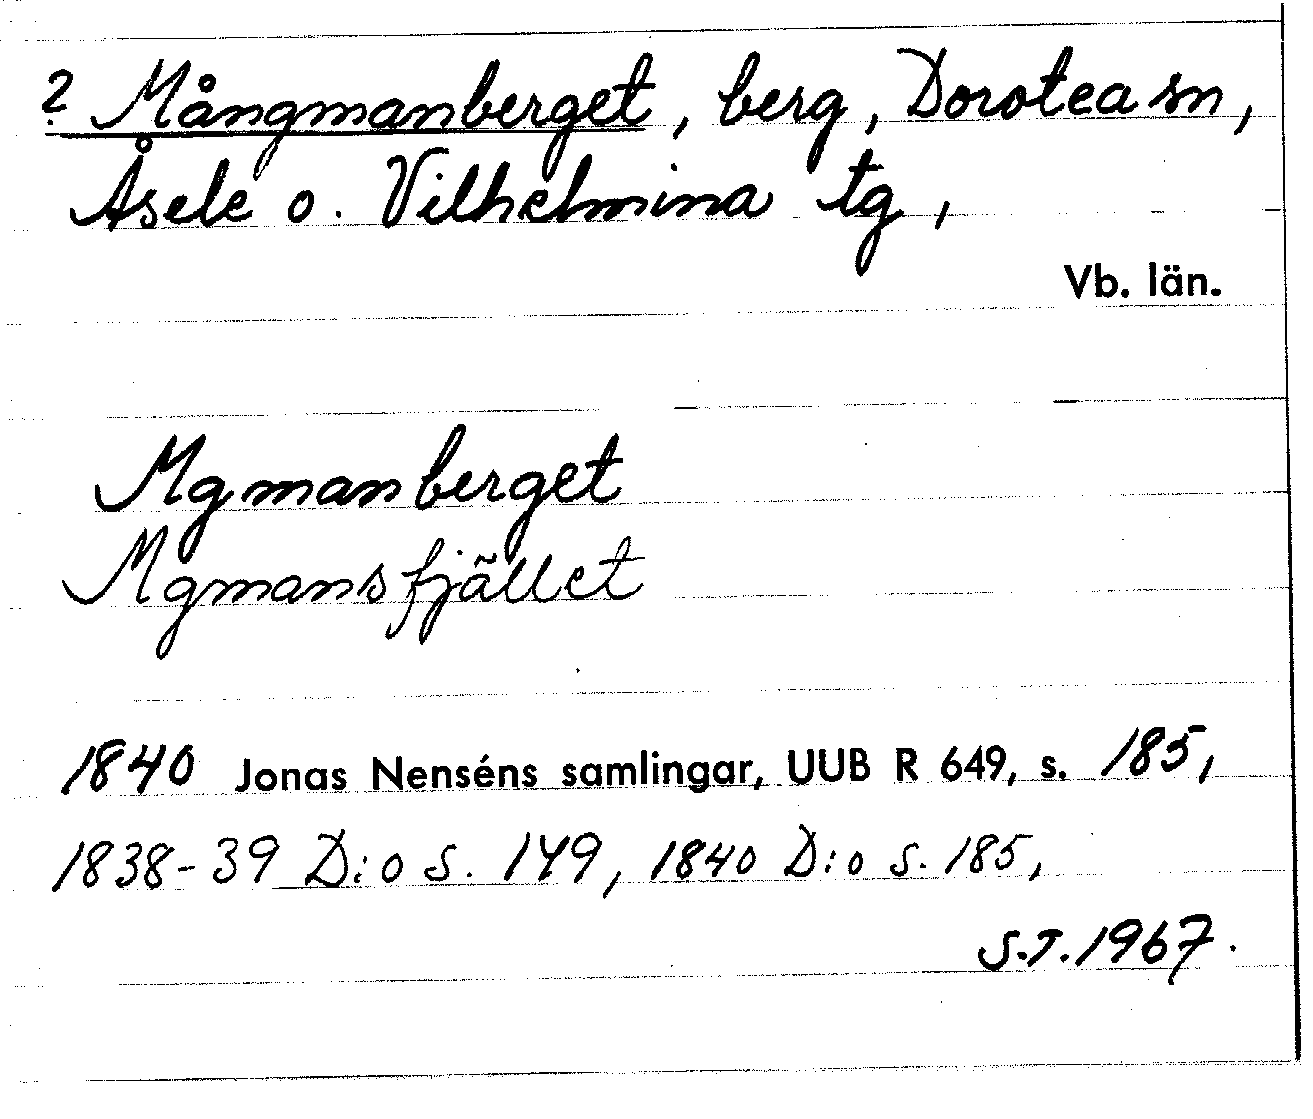 ? Mångmanberget, berg, Dorotea sn,
Åsele o. Vilhelmina tg,
Vb. län.
Mgmanberget
Mgmansfjället
1840 Jonas Nenséns samlingar, UUB R 649, s. 185,
1838-39 D:o s. 149, 1840 D:o s. 185,
S.T. 1967.